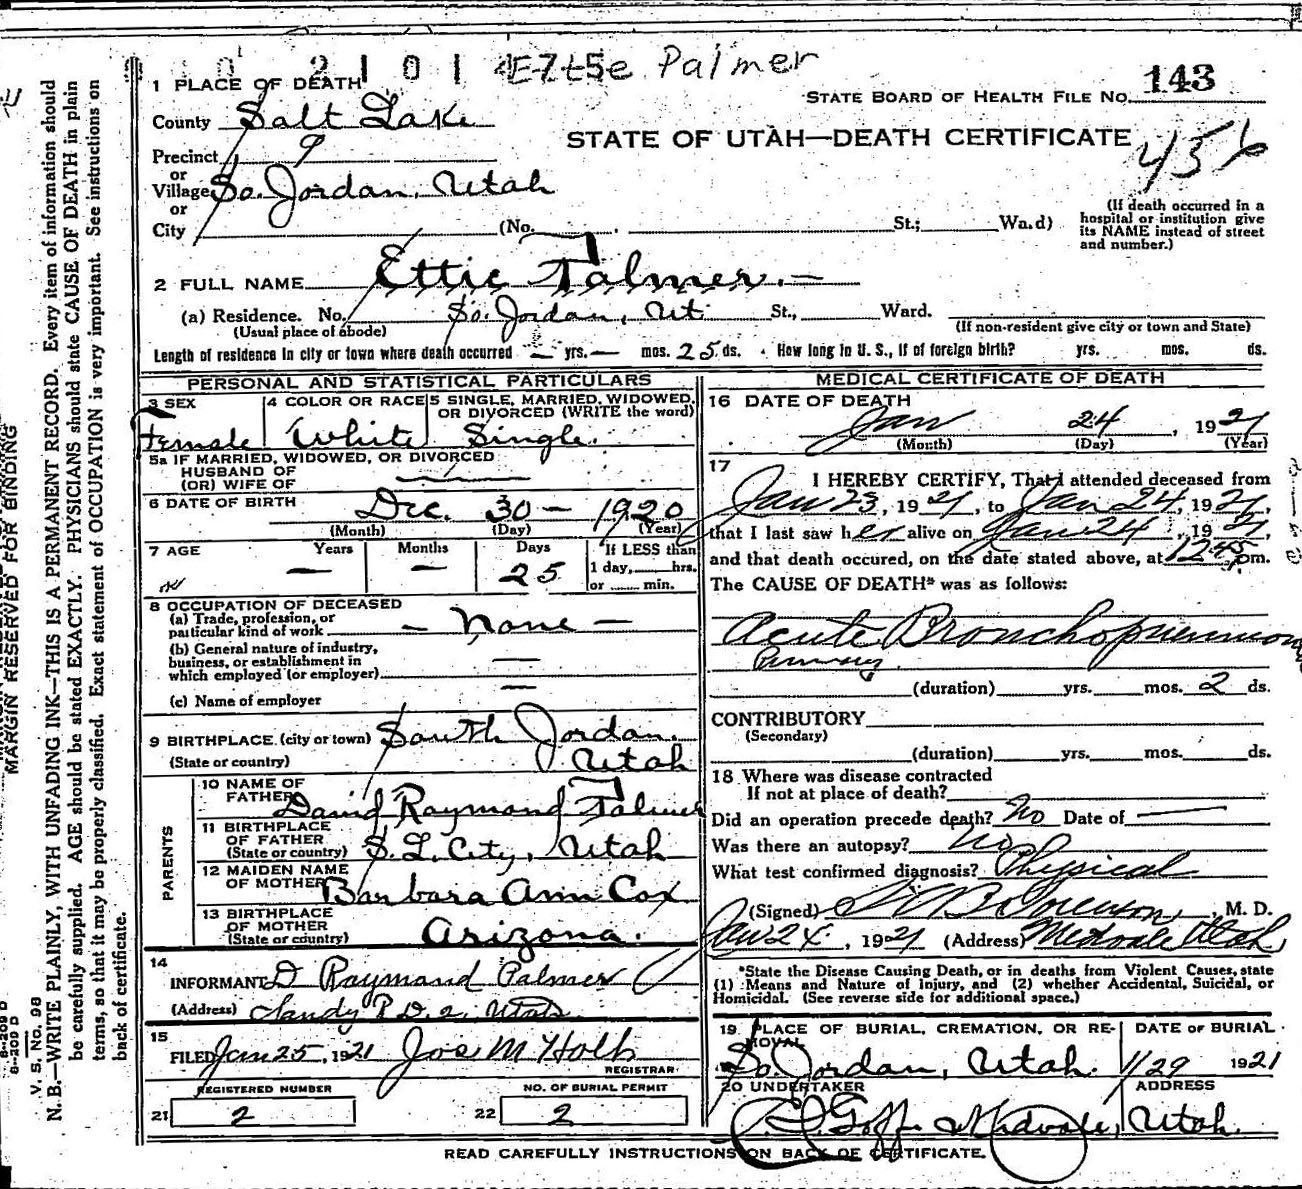 2101 Ettie Palmer
1 PLACE OF DEATH
STATE BOARD OF HEALTH FILE NO. 143
County Salt Lake
STATE OF UTAH—DEATH CERTIFICATE
456
Precinct 9
or
Village So. Jordan, Utah
or
City (No. St.; Ward)
(If death occurred in a
hospital or institution give
its NAME instead of street
and number.)
2 FULL NAME Ettie Palmer.
(a) Residence. No. So. Jordan, Ut. St., Ward.
(Usual place of abode)
(If non-resident give city or town and State)
Length of residence in city or town where death occurred — yrs. — mos. 25 ds. How long in U. S., if of foreign birth? yrs. mos. ds.
PERSONAL AND STATISTICAL PARTICULARS
3 SEX
Female
4 COLOR OR RACE
White
5 SINGLE, MARRIED, WIDOWED,
OR DIVORCED (WRITE the word)
Single.
5a IF MARRIED, WIDOWED, OR DIVORCED
HUSBAND OF
(OR) WIFE OF
6 DATE OF BIRTH Dec. 30 – 1920
(Month) (Day) (Year)
7 AGE Years Months Days If LESS than
— — 25 1 day, hrs.
or min.
8 OCCUPATION OF DECEASED
(a) Trade, profession, or
particular kind of work — None —
(b) General nature of industry,
business, or establishment in
which employed (or employer) —
(c) Name of employer —
9 BIRTHPLACE (city or town) South Jordan.
(State or country) Utah
PARENTS
10 NAME OF
FATHER David Raymond Palmer
11 BIRTHPLACE
OF FATHER
(State or country) S. L. City, Utah
12 MAIDEN NAME
OF MOTHER Barbara Ann Cox
13 BIRTHPLACE
OF MOTHER
(State or country) Arizona.
14
INFORMANT D Raymond Palmer
(Address) Sandy R D 2, Utah
15
FILED Jan 25, 1921 Joe M Holt
REGISTRAR
REGISTERED NUMBER
21 2
NO. OF BURIAL PERMIT
22 2
MEDICAL CERTIFICATE OF DEATH
16 DATE OF DEATH
Jan 24, 1921
(Month) (Day) (Year)
17
I HEREBY CERTIFY, That I attended deceased from
Jan 23, 1921, to Jan 24, 1921,
that I last saw her alive on Jan 24, 1921,
and that death occured, on the date stated above, at 12:45 pm.
The CAUSE OF DEATH* was as follows:
Acute Bronchopneumonia
Primary.
(duration) yrs. mos. 2 ds.
CONTRIBUTORY
(Secondary)
(duration) yrs. mos. ds.
18 Where was disease contracted
If not at place of death?
Did an operation precede death? No Date of —
Was there an autopsy? No
What test confirmed diagnosis? Physical
(Signed) M. D.
Jan 24, 1921 (Address) Midvale Utah
*State the Disease Causing Death, or in deaths from Violent Causes, state
(1) Means and Nature of Injury, and (2) whether Accidental, Suicidal, or
Homicidal. (See reverse side for additional space.)
19 PLACE OF BURIAL, CREMATION, OR RE-
MOVAL
So. Jordan, Utah.
DATE OF BURIAL
1/29 1921
20 UNDERTAKER
Goff Midvale,
ADDRESS
Utah.
READ CAREFULLY INSTRUCTIONS ON BACK OF CERTIFICATE.
MARGIN RESERVED FOR BINDING
V. S. No. 98
N. B.—WRITE PLAINLY, WITH UNFADING INK—THIS IS A PERMANENT RECORD. Every item of information should
be carefully supplied. AGE should be stated EXACTLY. PHYSICIANS should state CAUSE OF DEATH in plain
terms, so that it may be properly classified. Exact statement of OCCUPATION is very important. See instructions on
back of certificate.